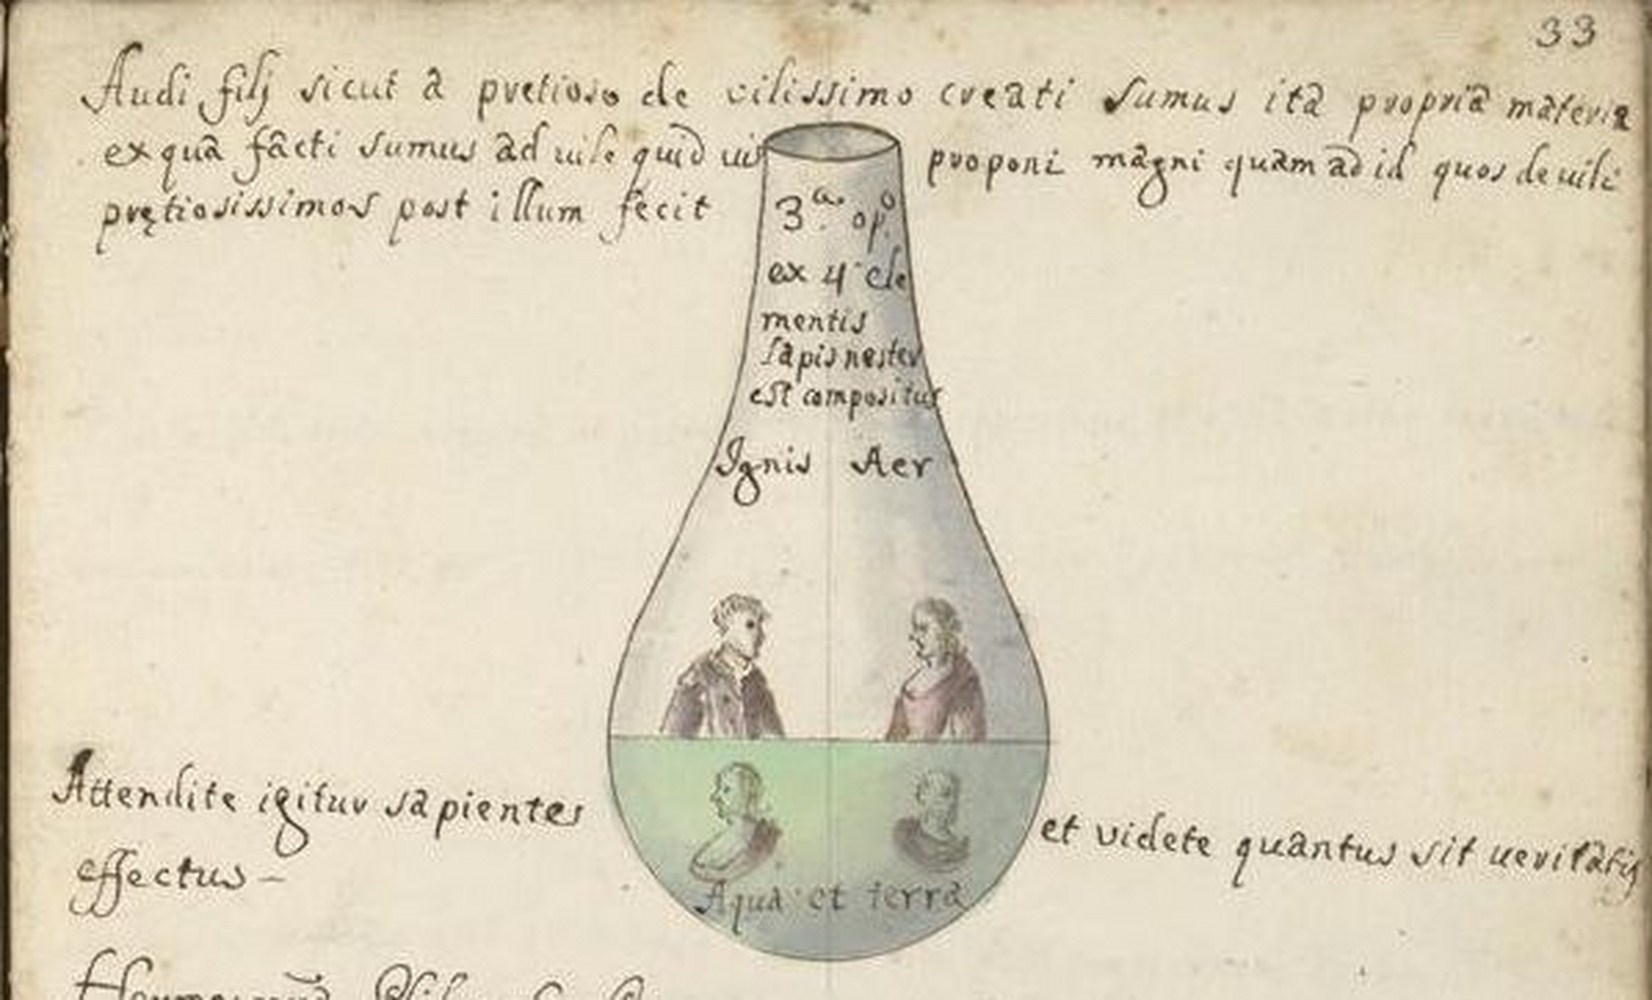 33
Audi filij sicut a pretioso de vilissimo creati sumus ita propria materia
ex qua facti sumus ad uile quid uis proponi magni quam ad id quos de uili
pretiosissimos post illum fecit
3.a op.o
ex 4 ele
mentis
lapis nester
est compositus
Ignis Aer
Attendite igitur sapientes et videte quantus sit ueritatis
effectus -
Aqua et terra